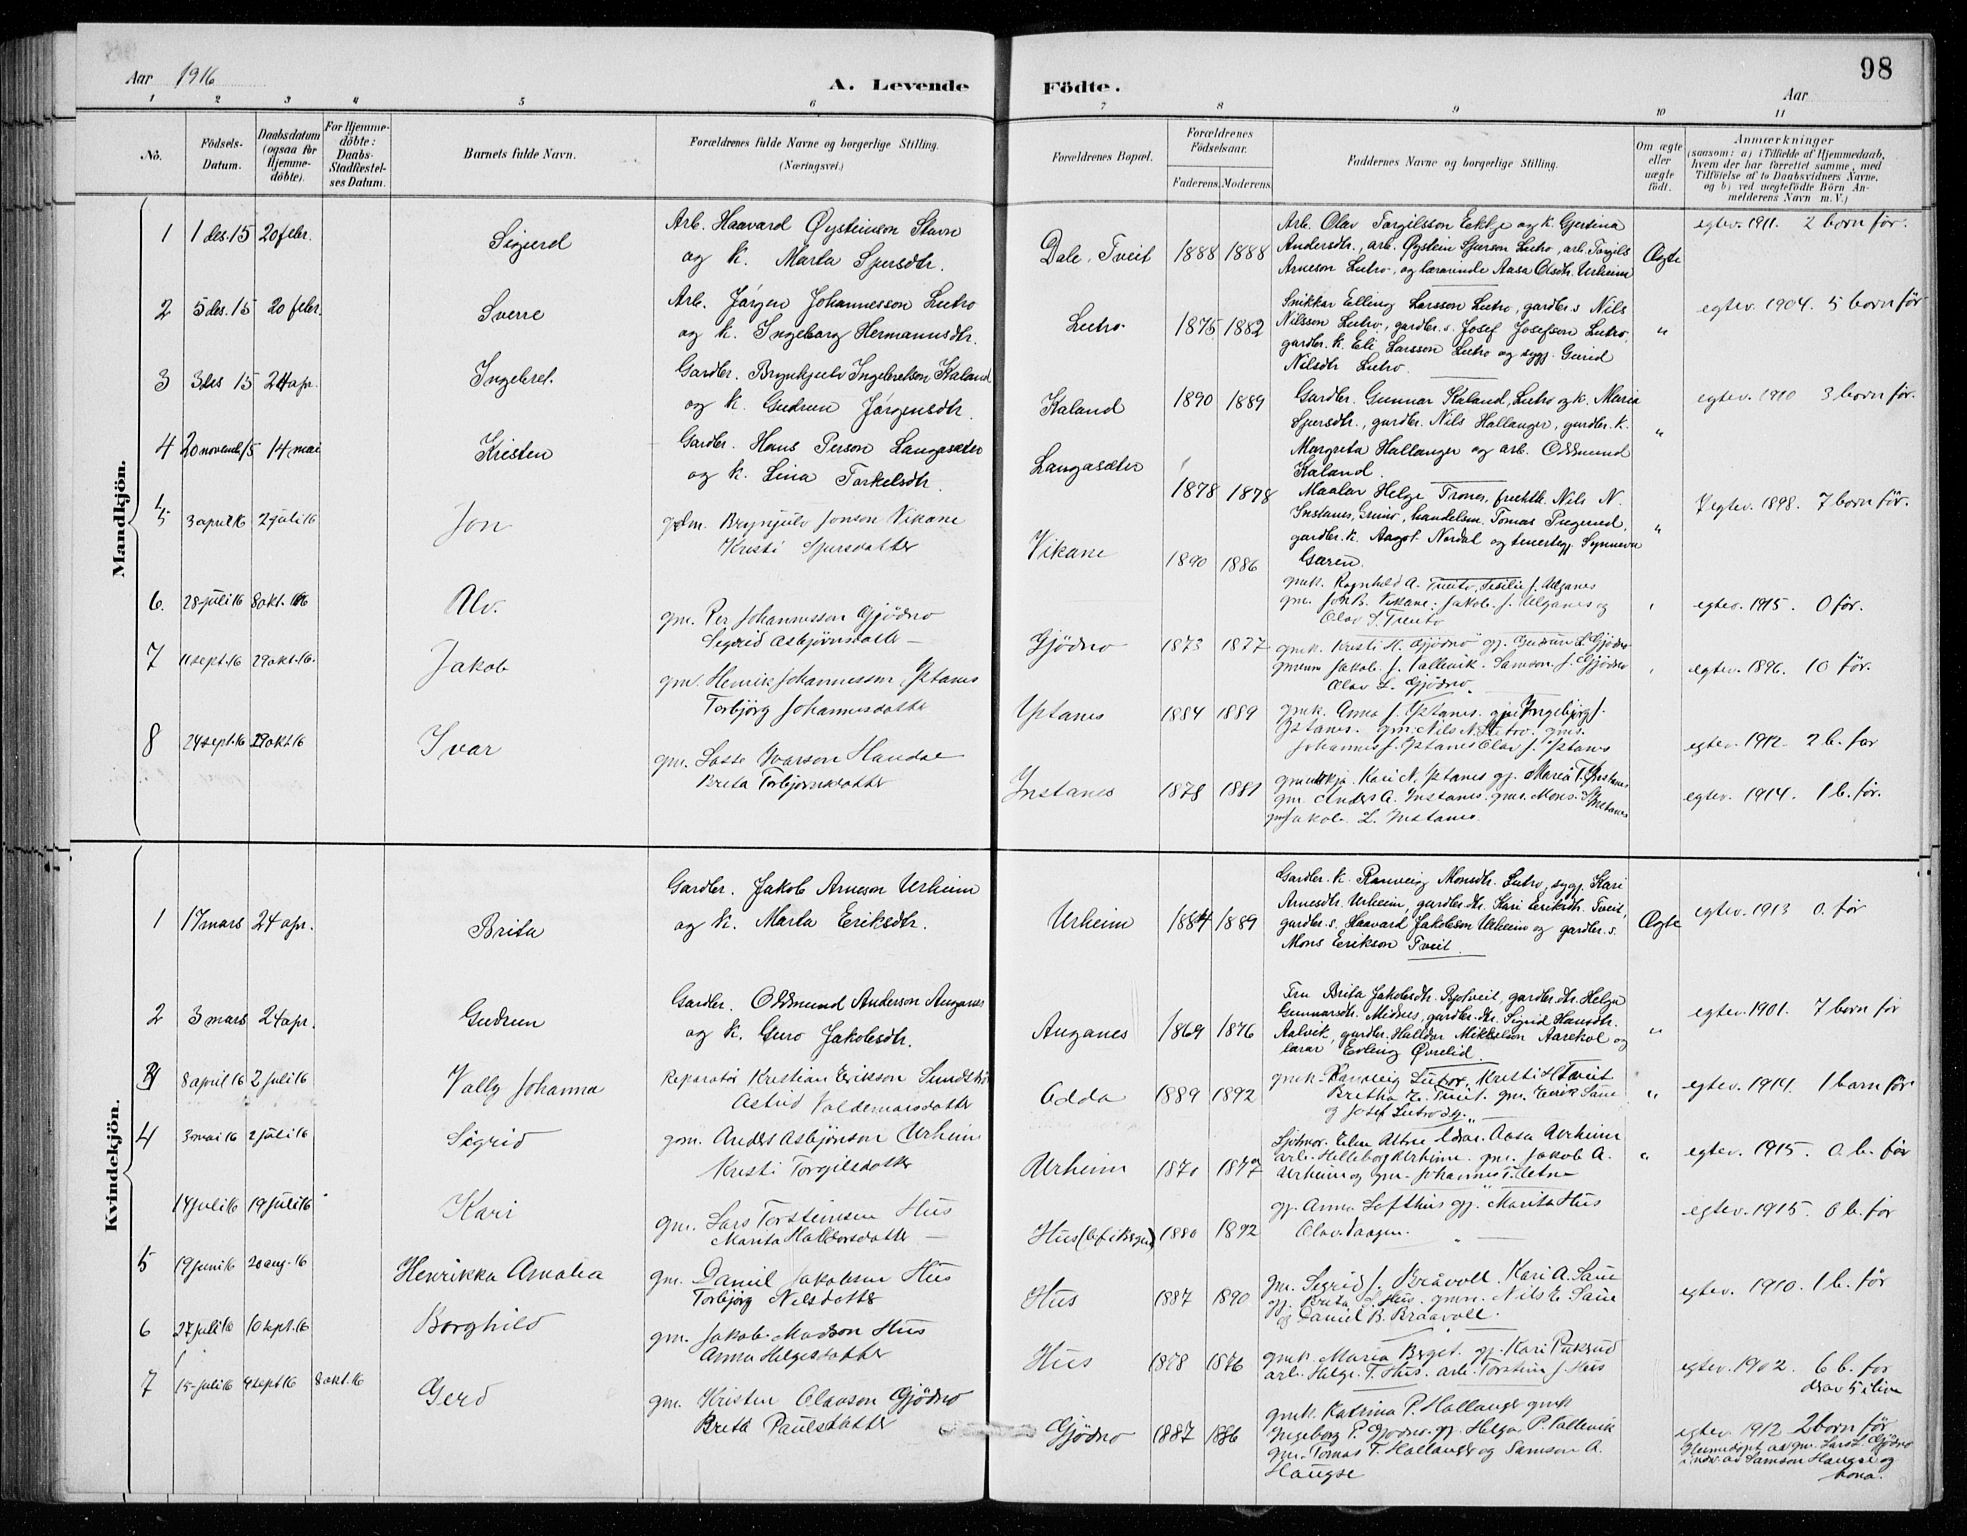 98
Aar 1916
A. Levende Födte.
Aar
1 2 3 4 5 6 7 8 9 10 11
No.
Födsels-Datum.
Daabsdatum (ogsaa for Hjemme-döbte).
For Hjemme-döbte: Daabs-Stadfæstel-ses Datum.
Barnets fulde Navn.
Forældrenes fulde Navne og borgerlige Stilling. (Næringsvei.)
Forældrenes Bopæl.
Forældrenes Födselsaar.
Faderens. Moderens.
Faddernes Navne og borgerlige Stilling.
Om ægte eller uægte födt.
Anmærkninger
(saasom: a) i Tilfælde af Hjemmedaab,
hvem der har forrettet samme, med
Tilföielse af to Daabsvidners Navne,
og b) ved uægtefödte Börn An-
melderens Navn m. V.)
Mandkjön.
1 1 des. 15 20 febr. Sigurd
Arb. Haavard Øysteinson Stavn
og k. Marta Sjursdtr.
Dale, Tveit 1888 1888
Arb. Olav Torgilsson Eekje og k. Gjertina
Andersdtr., arb. Øystein Sjurson Lutro, arb. Torgils
Arneson Lutro, og lærarinde Aasa Olsdtr. Urheim
Ægte
egtev. 1911. 2 born før.
2 5 des. 15 20 febr. Sverre
Arb. Jørgen Johannesson Lutro
og k. Ingeborg Hermannsdtr.
Lutro 1875 1882
Snikkar Elling Larsson Lutro, gardbr.s Nils
Nilsson Lutro, gardbr. s. Josef Josefson Lutro,
gardbr. k. Eli Larsson Lutro og sygj. Gurid
Nilsdtr Lutro.
"
egtev. 1904. 5 born før
3 3 des 15 24 apr. Ingebret.
Gardbr. Brynhjulv Ingebrekson Kaland
og k. Gudrun Jørgensdtr.
Kaland 1890 1889
Gardbr. Gunnar Kaland, Lutro og k. Maria
Sjursdtr., gardbr. Nils Hallanger, gardbr. k.
Margreta Hallanger og arb. Oddmund
Kaland.
"
egtev. 1910 3 born før.
4 20 novemb 15 14 mai Kristen
Gardbr. Hans Person Langasæter
og k. Lina Torkelsdtr.
Langasæter 1878 1878
Maalar Helge Trones, Nils N.
Instanes, handelsm. Tomas
gardbr. k. Aagot Nordal og tenestegj. Synneva
"
egtev. 1898. 7 born før.
5 3 april 16 2 juli 16 Jon
gdm. Brynjulv Jonson Vikane
Kristi Sjursdatter
Vikane 1890 1886
gmk. Ragnhild A. Tveito, Sesilie J. Ulganes
gm. Jon B. Vikane, Jakob J. Ulganes og
Olav S. Tveito
egtev. 1915. 0 før.
6. 28 juli 16 8 okt. 16 Alv.
gm. Per Johannesson Gjødno
Sigrid Asbjørnsdotter
Gjödno 1873 1877
gmk. Kristi H. Gjödno gj. Gudrun L Gjödno
Jakob J. Vallevik. Samson J. Gjödno
Olav L. Gjödno.
egtev. 1896. 10 før.
7 11 sept. 16 29 okt. 16. Jakob
gm. Henrik Johannesson Ystanes
Torbjörg Johannesdotter
Ystanes 1884 1889
gmk. Anna J. Ystanes. Ingebjørg J.
Ystanes. gm. Nils N. Lutro. gms.
Johannes J. Ystanes Olav J. Ystanes
egtev. 1912. 2 b. før
8 24 sept. 16 29 okt 16 Ivar
gm. Lasse Ivarson Handal
Brita Torbjørnsdotter
Ynstanes 1878 1881
Kari N. Ystanes gj. Maria T. Instanes
gm. Anders A. Instanes. gms. Mons. Instanes
gm Jakob L. Instanes.
egtev. 1914. 1 b. før.
Kvindekjön.
1 17 mars 24 apr. Brita
Gardbr. Jakob Arneson Urheim
og k. Marta Eriksdtr.
Urheim 1884 1889
Gardbr. k. Ranveig Monsdtr. Lutro, sygj. Kari
Arnesdtr. Urheim, gardbr.dtr. Kari Eriksdtr. Tveit,
gardbr. s. Haavard Jakobson Urheim og gardbr. s.
Mons Erikson Tveit.
Ægte
egtev. 1913 0 før
2 3 mars 24 apr. Gudrun
Gardbr. Oddmund Anderson Auganes
og k. Guro Jakobsdtr.
Auganes 1869 1876
Fru Brita Jakobsdtr. Bjotveit, gardbr. dtr. Helga
Gunnarsdtr. Midnes, gardbr. dtr. Sigrid Hansdtr.
Aalvik, gardbr. Halldor Mikkelson Aarekol og
lærar Erling Øvrelid.
"
egtev. 1901. 7 born før
3 8 april 16 2 juli 16 Vally Johanna
Reparatør Kristian Erikson Sundstrø
Astrid Valdemarsdotter
Odda 1889 1892
gmk. Randveig Lutro, Kristi H Tveit
Bretha E. Tveit. gm. Eirik Saue
og Josef Lutro
"
egtev. 1914. 1 barn før
4 3 mai 16 2 juli 16 Sigrid
gm. Anders Asbjönson Urheim
Kristi Torgilsdotter
Urheim 1871 1877
Aasa Urheim
arb. Helleborg Urheim. gm. Jakob A.
Urheim og gm. Johannes T. Aetne
"
egtev. 1915. 0 b. før
14 juli 16 19 juli 16 Kari
gm. Lars Torsteinsen Hus
Marita Halldorsdotter
Hus 1880 1892
gj. Anna Lofthus gj. Marita Hus
Olav Vaagen.
egtev. 1915. 0 b. før
5 19 juni 16 20 aug. 16 Henrikka Amalia
gm. Daniel Jakobsen Hus
Torbjørg Nilsdotter
Hus 1887 1890
gm. Sigrid J. Bråvoll. Kari A. Saue
gj. Brita S. Hus. gmn. Nils E. Saue
og Daniel B. Braavoll.
egtev. 1910. 1 b. før
6 27 juli 16 10 sept. 16 Borghild
gm. Jakob Madson Hus
Anna Helgesdotter
Hus 1878 1876
gmk. Maria Berget. gj. Kari
arb. Helge T. Hus. arb. Torstein J. Hus
egtev. 1902. 6 b. før
derav 5 i live
7 15 juli 16 4 sept 16 8 okt. 16 Gerd
gm. Kristen Olavson Gjödno
Brita Paulsdotter
Gjödno 1887 1886
gmk. Katrina P. Hallanger gmk
Ingeborg P. Gjødno. gj. Helga P. Vallevik
gm. Tomas T. Hallanger og Samson A.
Haugse
egtev. 1912 2 born før
Heimedøpt av gm. Lars L. Gjödno
Samson Haugse og
kona.